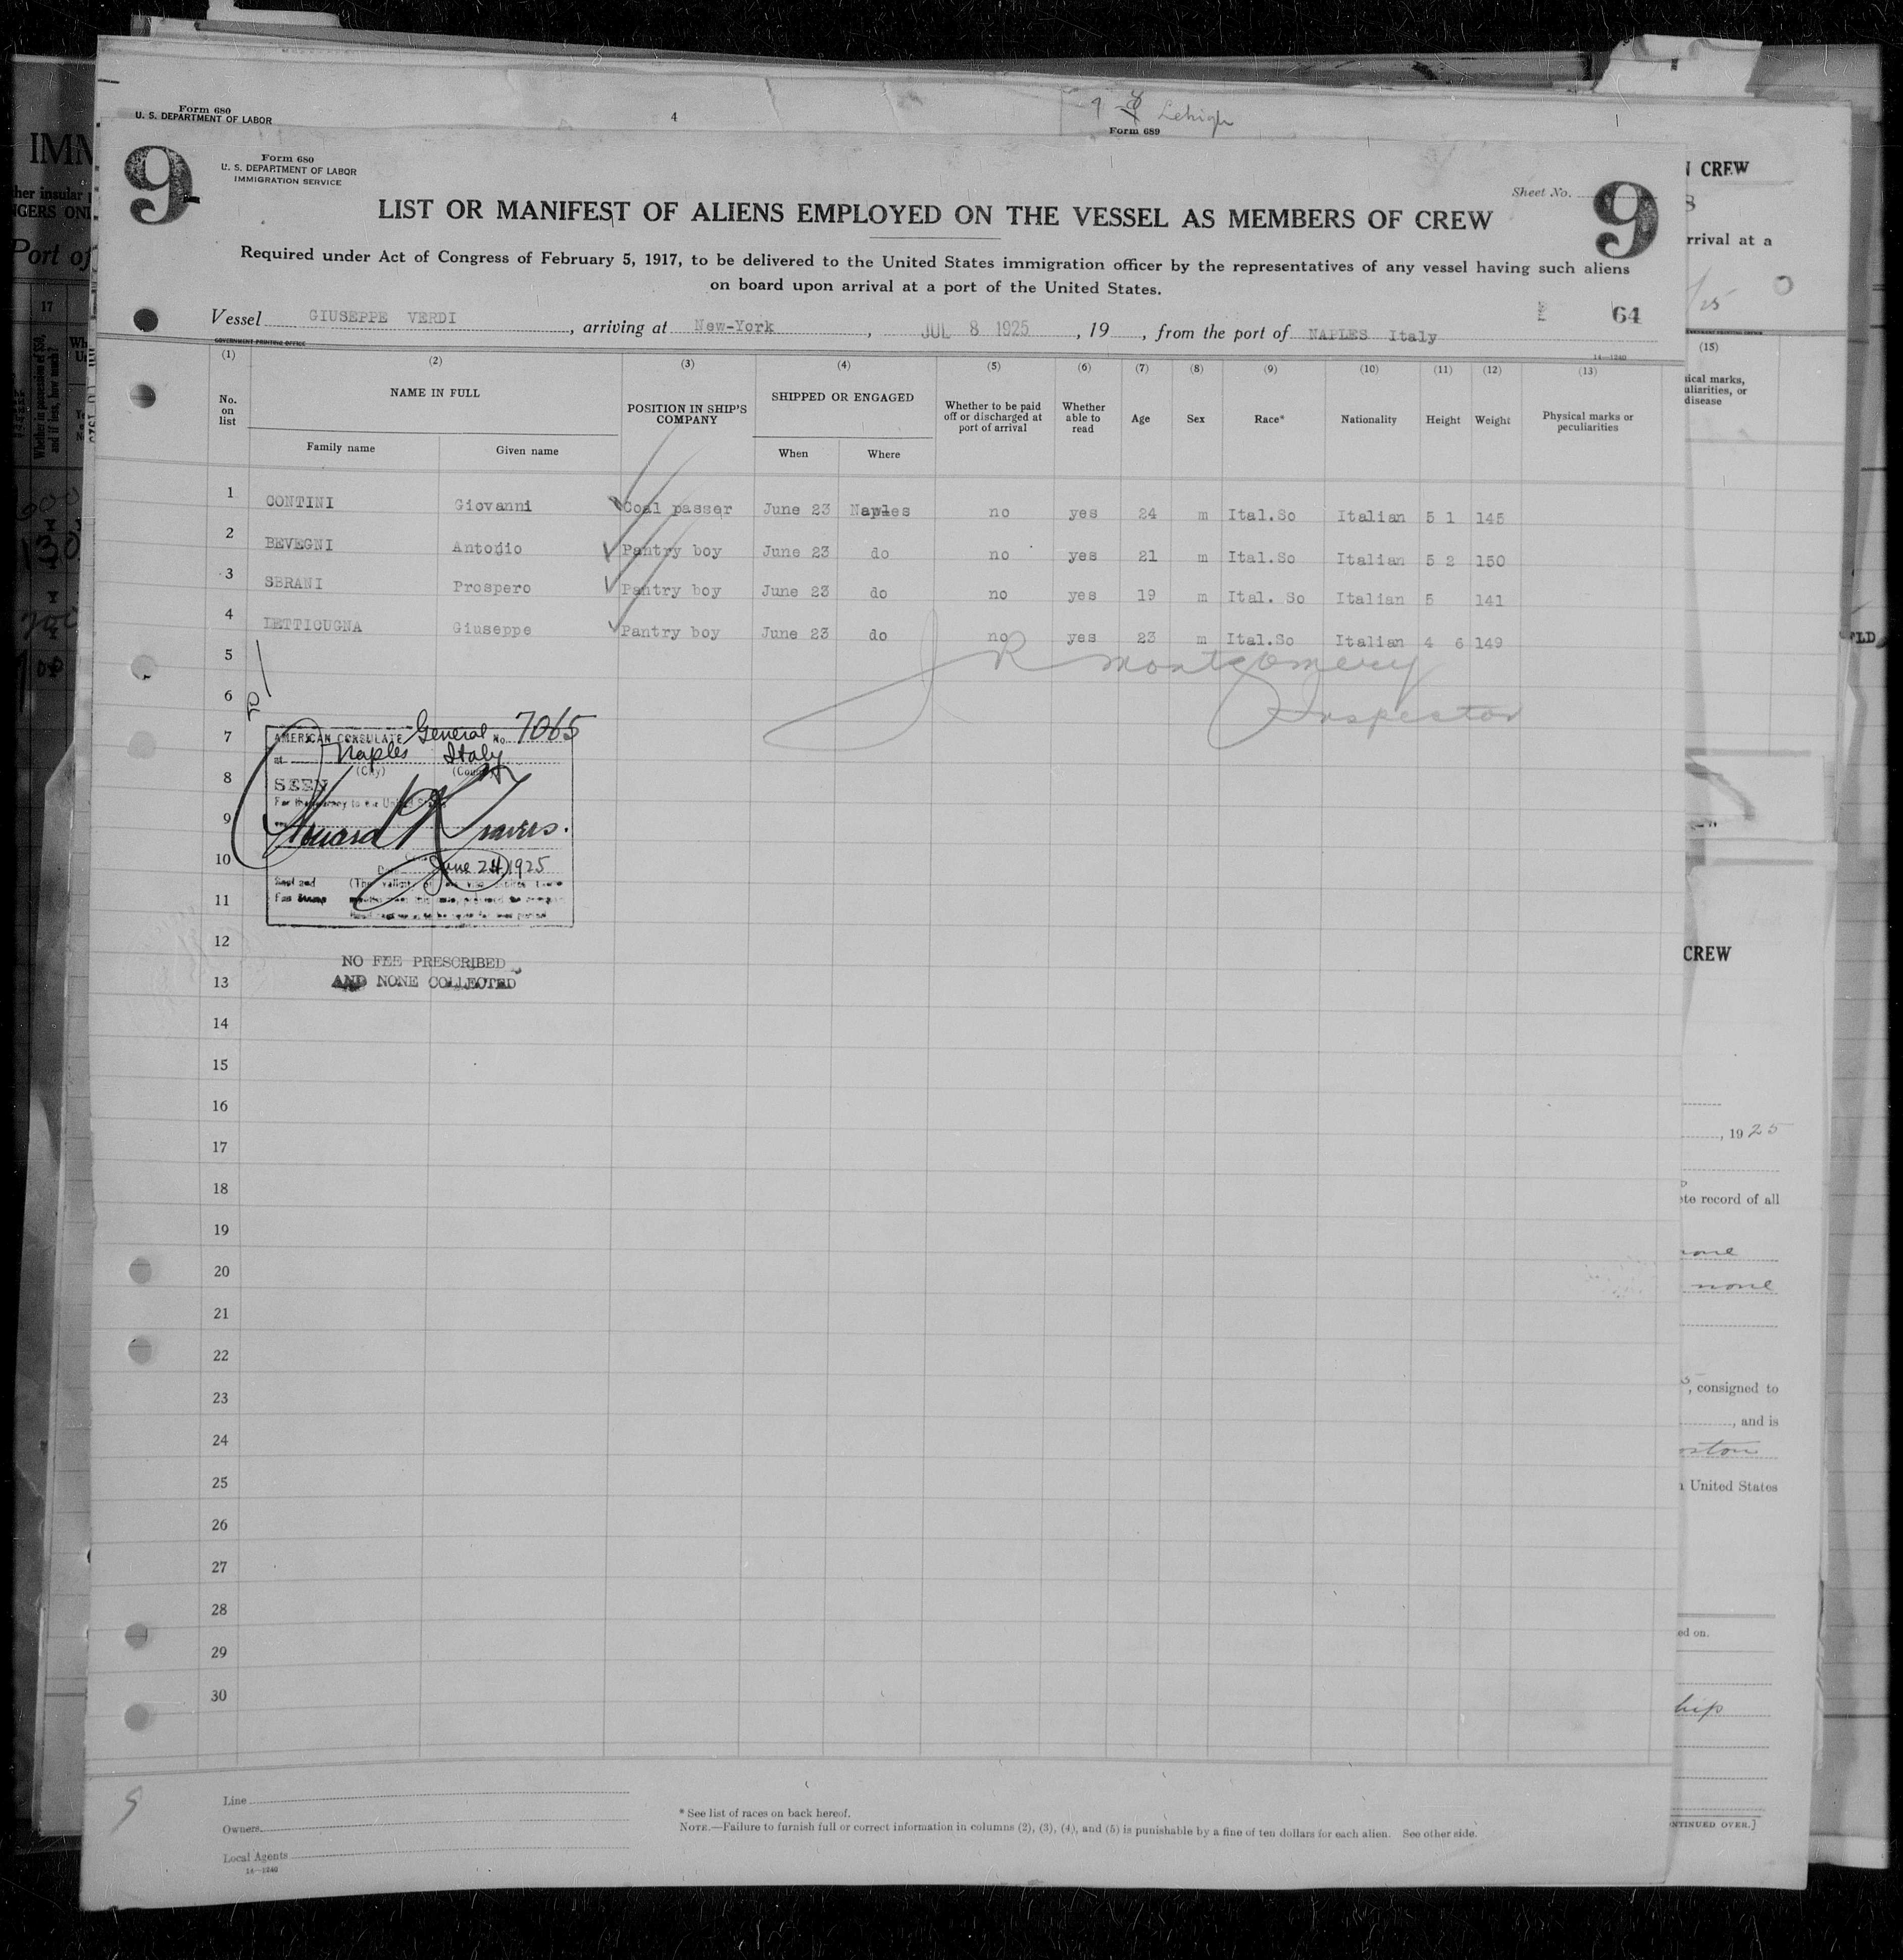 Form 680
U. S. DEPARTMENT OF LABOR
4
9 8 Lehigh
Form 689
9
Form 680
U. S. DEPARTMENT OF LABOR
IMMIGRATION SERVICE
Sheet No.
9
LIST OR MANIFEST OF ALIENS EMPLOYED ON THE VESSEL AS MEMBERS OF CREW
Required under Act of Congress of February 5, 1917, to be delivered to the United States immigration officer by the representatives of any vessel having such aliens
on board upon arrival at a port of the United States.
64
Vessel GIUSEPPE VERDI, arriving at New-York, JUL 8 1925, 19, from the port of NAPLES Italy
GOVERNMENT PRINTING OFFICE
14—1240
(1) (2) (3) (4) (5) (6) (7) (8) (9) (10) (11) (12) (13)
No. on list NAME IN FULL POSITION IN SHIP'S COMPANY SHIPPED OR ENGAGED Whether to be paid off or discharged at port of arrival Whether able to read Age Sex Race* Nationality Height Weight Physical marks or peculiarities
Family name Given name When Where
1 CONTINI Giovanni Coal passer June 23 Naples no yes 24 m Ital.So Italian 5 1 145
2 BEVEGNI Antonio Pantry boy June 23 do no yes 21 m Ital.So Italian 5 2 150
3 SBRANI Prospero Pantry boy June 23 do no yes 19 m Ital. So Italian 5 141
4 IETTICUGNA Giuseppe Pantry boy June 23 do no yes 23 m Ital.So Italian 4 6 149
5
J R Montgomery
6
Inspector
7
AMERICAN CONSULATE General No. 7065
at Naples Italy
(City) (Country)
8
SEEN
For the journey to the United States
9
Howard K Travis.
10
Date June 24, 1925
Seal and
Fee Stamp
11
12
NO FEE PRESCRIBED
13
AND NONE COLLECTED
14
15
16
17
18
19
20
21
22
23
24
25
26
27
28
29
30
Line
Owners
Local Agents
14—1240
* See list of races on back hereof.
NOTE.—Failure to furnish full or correct information in columns (2), (3), (4), and (5) is punishable by a fine of ten dollars for each alien. See other side.
9
CREW
rrival at a
(15)
ical marks,
uliarities, or
disease
CREW
, 1925
ete record of all
none
none
, consigned to
, and is
oston
United States
ed on.
hip
NTINUED OVER.]